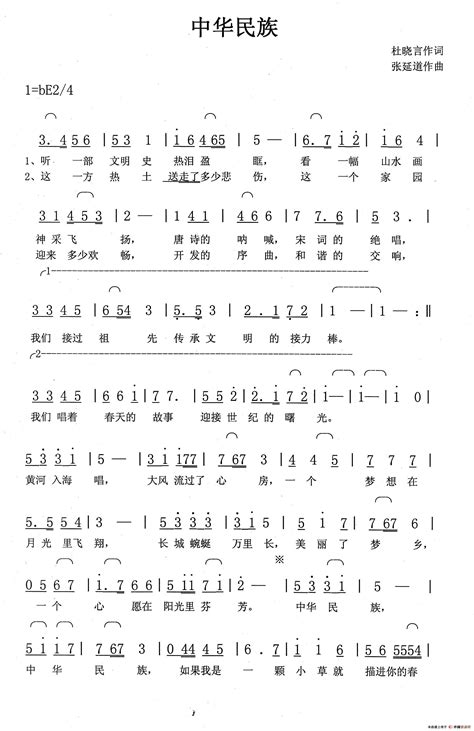 中华民族
杜晓言作词
张延道作曲
1=bE2/4
3. 4 5 6 | 5 3 1 | i i 6 4 65 | 5 — | 6. 7 i 2 | i 6 4 |
1、听 一部 文明 史 热泪 盈 眶， 看 一幅 山水 画
2、这 一方 热 土 送走了多少悲 伤， 这 一 个 家 园
3 1 4 5 3 | 2 — | 1 4 1 | 4 5 6 i | 7 7. 6 | 5 3 . |
神 采 飞 扬， 唐 诗的 呐 喊， 宋 词 的 绝 唱，
迎来 多少欢 畅， 开 发的 序 曲， 和 谐 的 交 响，
1
3 3 4 5 | 6 6 3 | 5. 5 3 | 2 . 1 7 2 | 1 — | 1 — :‖
我们 接过 祖 先 传承文 明 的接力 棒。
2
3 3 4 5 | 6 6 1 | 7 7. | 5 5. 2 | 2 . i 7 2 | i — | i — | i 0 |
我们 唱着 春天的 故事 迎接 世 纪的 曙 光。
5 3 3 1 | 5 — | 3 i 177 | 6 7 3 | 5 — | 3 . i | 7 6 6 |
黄河 入海 唱， 大风 流过了 心 房， 一 个 梦 想 在
5. 5 5 4 | 3 — | 5 3 3 3 | 5 3 3 | 5 1 6 | i i 2 | 7 67 6 |
月 光 里飞 翔， 长 城 蜿蜒 万里 长， 美 丽 了 梦 乡，
0 5 6 7 | i. 7 6 6 | 5 5 5 5 4 | 3 — | 0 5 5 | 3 . 3 | i 6 |
一 个 心 愿在 阳光里 芬 芳。 中华 民 族，
※
5 i i | 7 67 3 | 0 44 4 5 | 6. i | 5 4 3 2 | 5 6 5554 |
中 华 民 族， 如果我 是 一 颗 小 草就 描进你的春